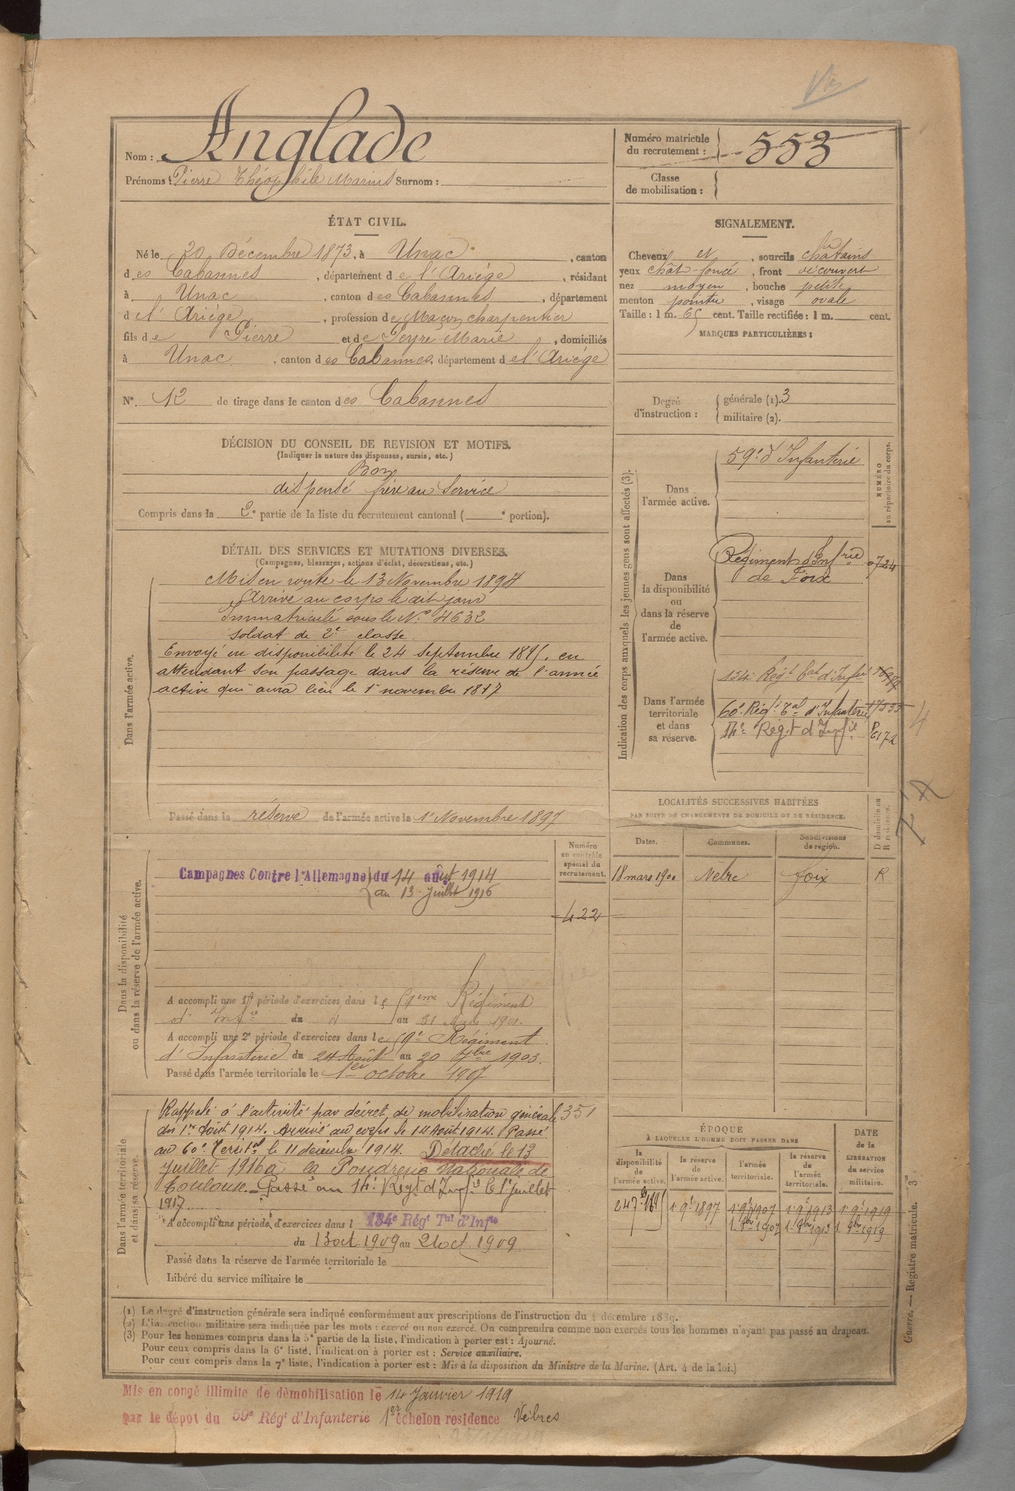 Nom : Anglade
Prénoms : Pierre Théophile Marius Surnom :
Numéro matricule du recrutement : 553
Classe de mobilisation :
ÉTAT CIVIL.
Né le 20 Décembre 1873, à Unac, canton
des Cabannes, département de l'Ariège, résidant
à Unac, canton des Cabannes, département
de l'Ariège, profession de Maçon charpentier
fils de Pierre et de Peyre Marie, domiciliés
à Unac, canton des Cabannes, département de l'Ariège
N° 12 de tirage dans le canton des Cabannes
SIGNALEMENT.
Cheveux et, sourcils châtains
yeux chât-foncé, front découvert
nez moyen, bouche petite
menton pointu, visage ovale
Taille : 1 m. 65 cent. Taille rectifiée : 1 m. cent.
MARQUES PARTICULIÈRES :
Degré d'instruction :
générale (1). 3
militaire (2).
DÉCISION DU CONSEIL DE REVISION ET MOTIFS.
(Indiquer la nature des dispenses, sursis, etc.)
Bon
dispensé frère au service
Compris dans la 2e partie de la liste du recrutement cantonal ( e portion).
DÉTAIL DES SERVICES ET MUTATIONS DIVERSES.
(Campagnes, blessures, actions d'éclat, décorations, etc.)
Dans l'armée active.
Mis en route le 13 Novembre 1894
Arrivé au corps le dit jour
Immatriculé sous le N° 4632
Soldat de 2e classe
Envoyé en disponibilité le 24 septembre 1895, en
attendant son passage dans la réserve de l'armée
active qui aura lieu le 1er novembre 1897
Passé dans la réserve de l'armée active le 1er Novembre 1897
Indication des corps auxquels les jeunes gens sont affectés (3).
NUMÉRO au répertoire du corps.
Dans l'armée active.
59e d'Infanterie
Dans la disponibilité ou dans la réserve de l'armée active.
Régiment d'Infrie de Foix
Dans l'armée territoriale et dans sa réserve.
134e Régt Tal d'Infie
60e Régt Tal d'Infanterie
14e Régt d'Infie
LOCALITÉS SUCCESSIVES HABITÉES
PAR SUITE DE CHANGEMENTS DE DOMICILE OU DE RÉSIDENCE.
Dates. Communes. Subdivisions de région. D domicile ou R résidence.
18 mars 1900 Vèbre Foix R
Numéro au contrôle spécial du recrutement.
422
Dans la disponibilité ou dans la réserve de l'armée active.
Campagnes Contre l'Allemagne du 14 août 1914
au 13 Juillet 1916
A accompli une 1re période d'exercices dans le 59eme Régiment
d'Infie du 4 au 31 1901.
A accompli une 2e période d'exercices dans le 59e Régiment
d'Infanterie du 24 Août au 20 7bre 1903.
Passé dans l'armée territoriale le 1er octobre 1907
Dans l'armée territoriale et dans sa réserve.
351
Rappelé à l'activité par décret de mobilisation générale
du 1er Août 1914. Arrivé au corps le 14 Août 1914. Passé
au 60e Territal le 11 décembre 1914. Détaché le 13
Juillet 1916 à la Poudrerie Nationale de
Toulouse. Passé au 14e Régt d'Infie le 1er juillet
1917
A accompli une période d'exercices dans l 134e Régt Tal d'Infie
du 13 oct 1909 au 21 oct 1909
Passé dans la réserve de l'armée territoriale le
Libéré du service militaire le
ÉPOQUE
À LAQUELLE L'HOMME DOIT PASSER DANS
la disponibilité de l'armée active. la réserve de l'armée active. l'armée territoriale. la réserve de l'armée territoriale.
DATE de la LIBÉRATION du service militaire.
24 7bre 1895 1 9bre 1897 1 9bre 1907 1 9bre 1913 1 9bre 1919
1 8bre 1907 1 8bre 1913 1 8bre 1919
Guerre. — Registre matricule.
(1) Le degré d'instruction générale sera indiqué conformément aux prescriptions de l'instruction du 4 décembre 1889.
(2) L'instruction militaire sera indiquée par les mots : exercé ou non exercé. On comprendra comme non exercés tous les hommes n'ayant pas passé au drapeau.
(3) Pour les hommes compris dans la 5e partie de la liste, l'indication à porter est : Ajourné.
Pour ceux compris dans la 6e liste, l'indication à porter est : Service auxiliaire.
Pour ceux compris dans la 7e liste, l'indication à porter est : Mis à la disposition du Ministre de la Marine. (Art. 4 de la loi.)
Mis en congé illimité de démobilisation le 14 Janvier 1919
par le dépôt du 59e Régt d'Infanterie 1er échelon residence Vèbres